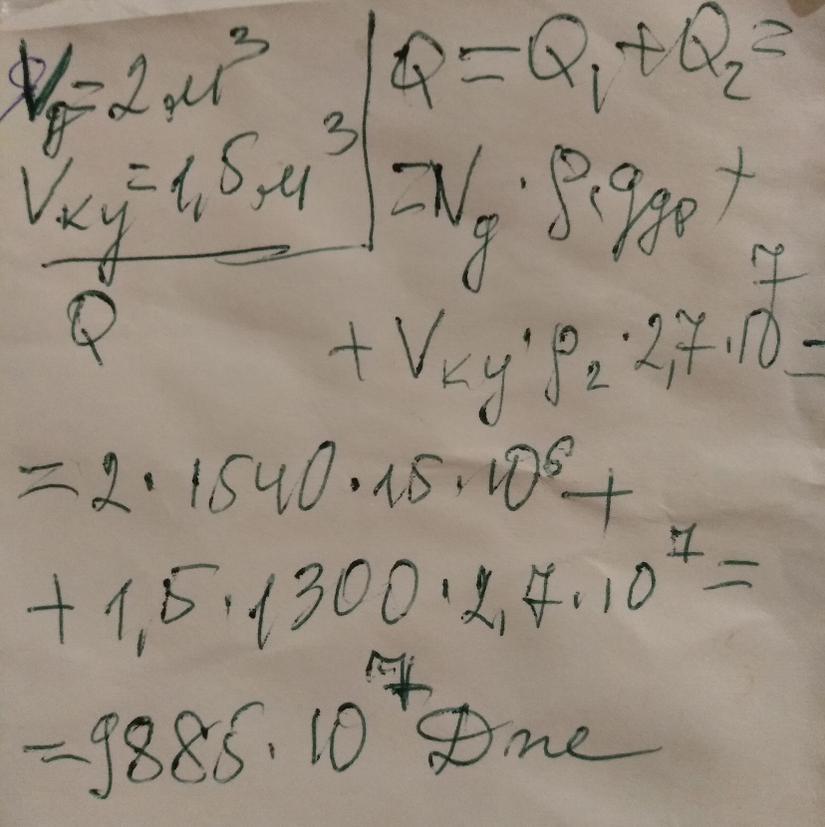 Vд = 2 м³
Vку = 1,5 м³
Q
Q = Q₁ + Q₂ =
= Vд · ρ₁ · qдр +
+ Vку · ρ₂ · 2,7 · 10⁷ =
= 2 · 1540 · 15 · 10⁶ +
+ 1,5 · 1300 · 2,7 · 10⁷ =
= 9885 · 10⁷ Дже